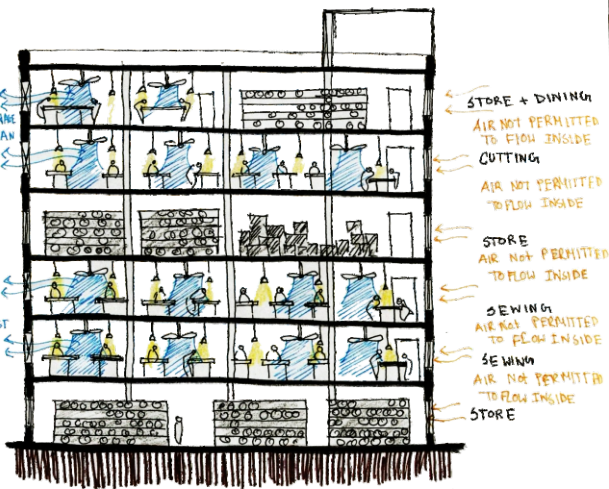 STORE + DINING
AIR NOT PERMITTED
TO FLOW INSIDE
CUTTING
AIR NOT PERMITTED
TO FLOW INSIDE
STORE
AIR NOT PERMITTED
TO FLOW INSIDE
SEWING
AIR NOT PERMITTED
TO FLOW INSIDE
SEWING
AIR NOT PERMITTED
TO FLOW INSIDE
STORE